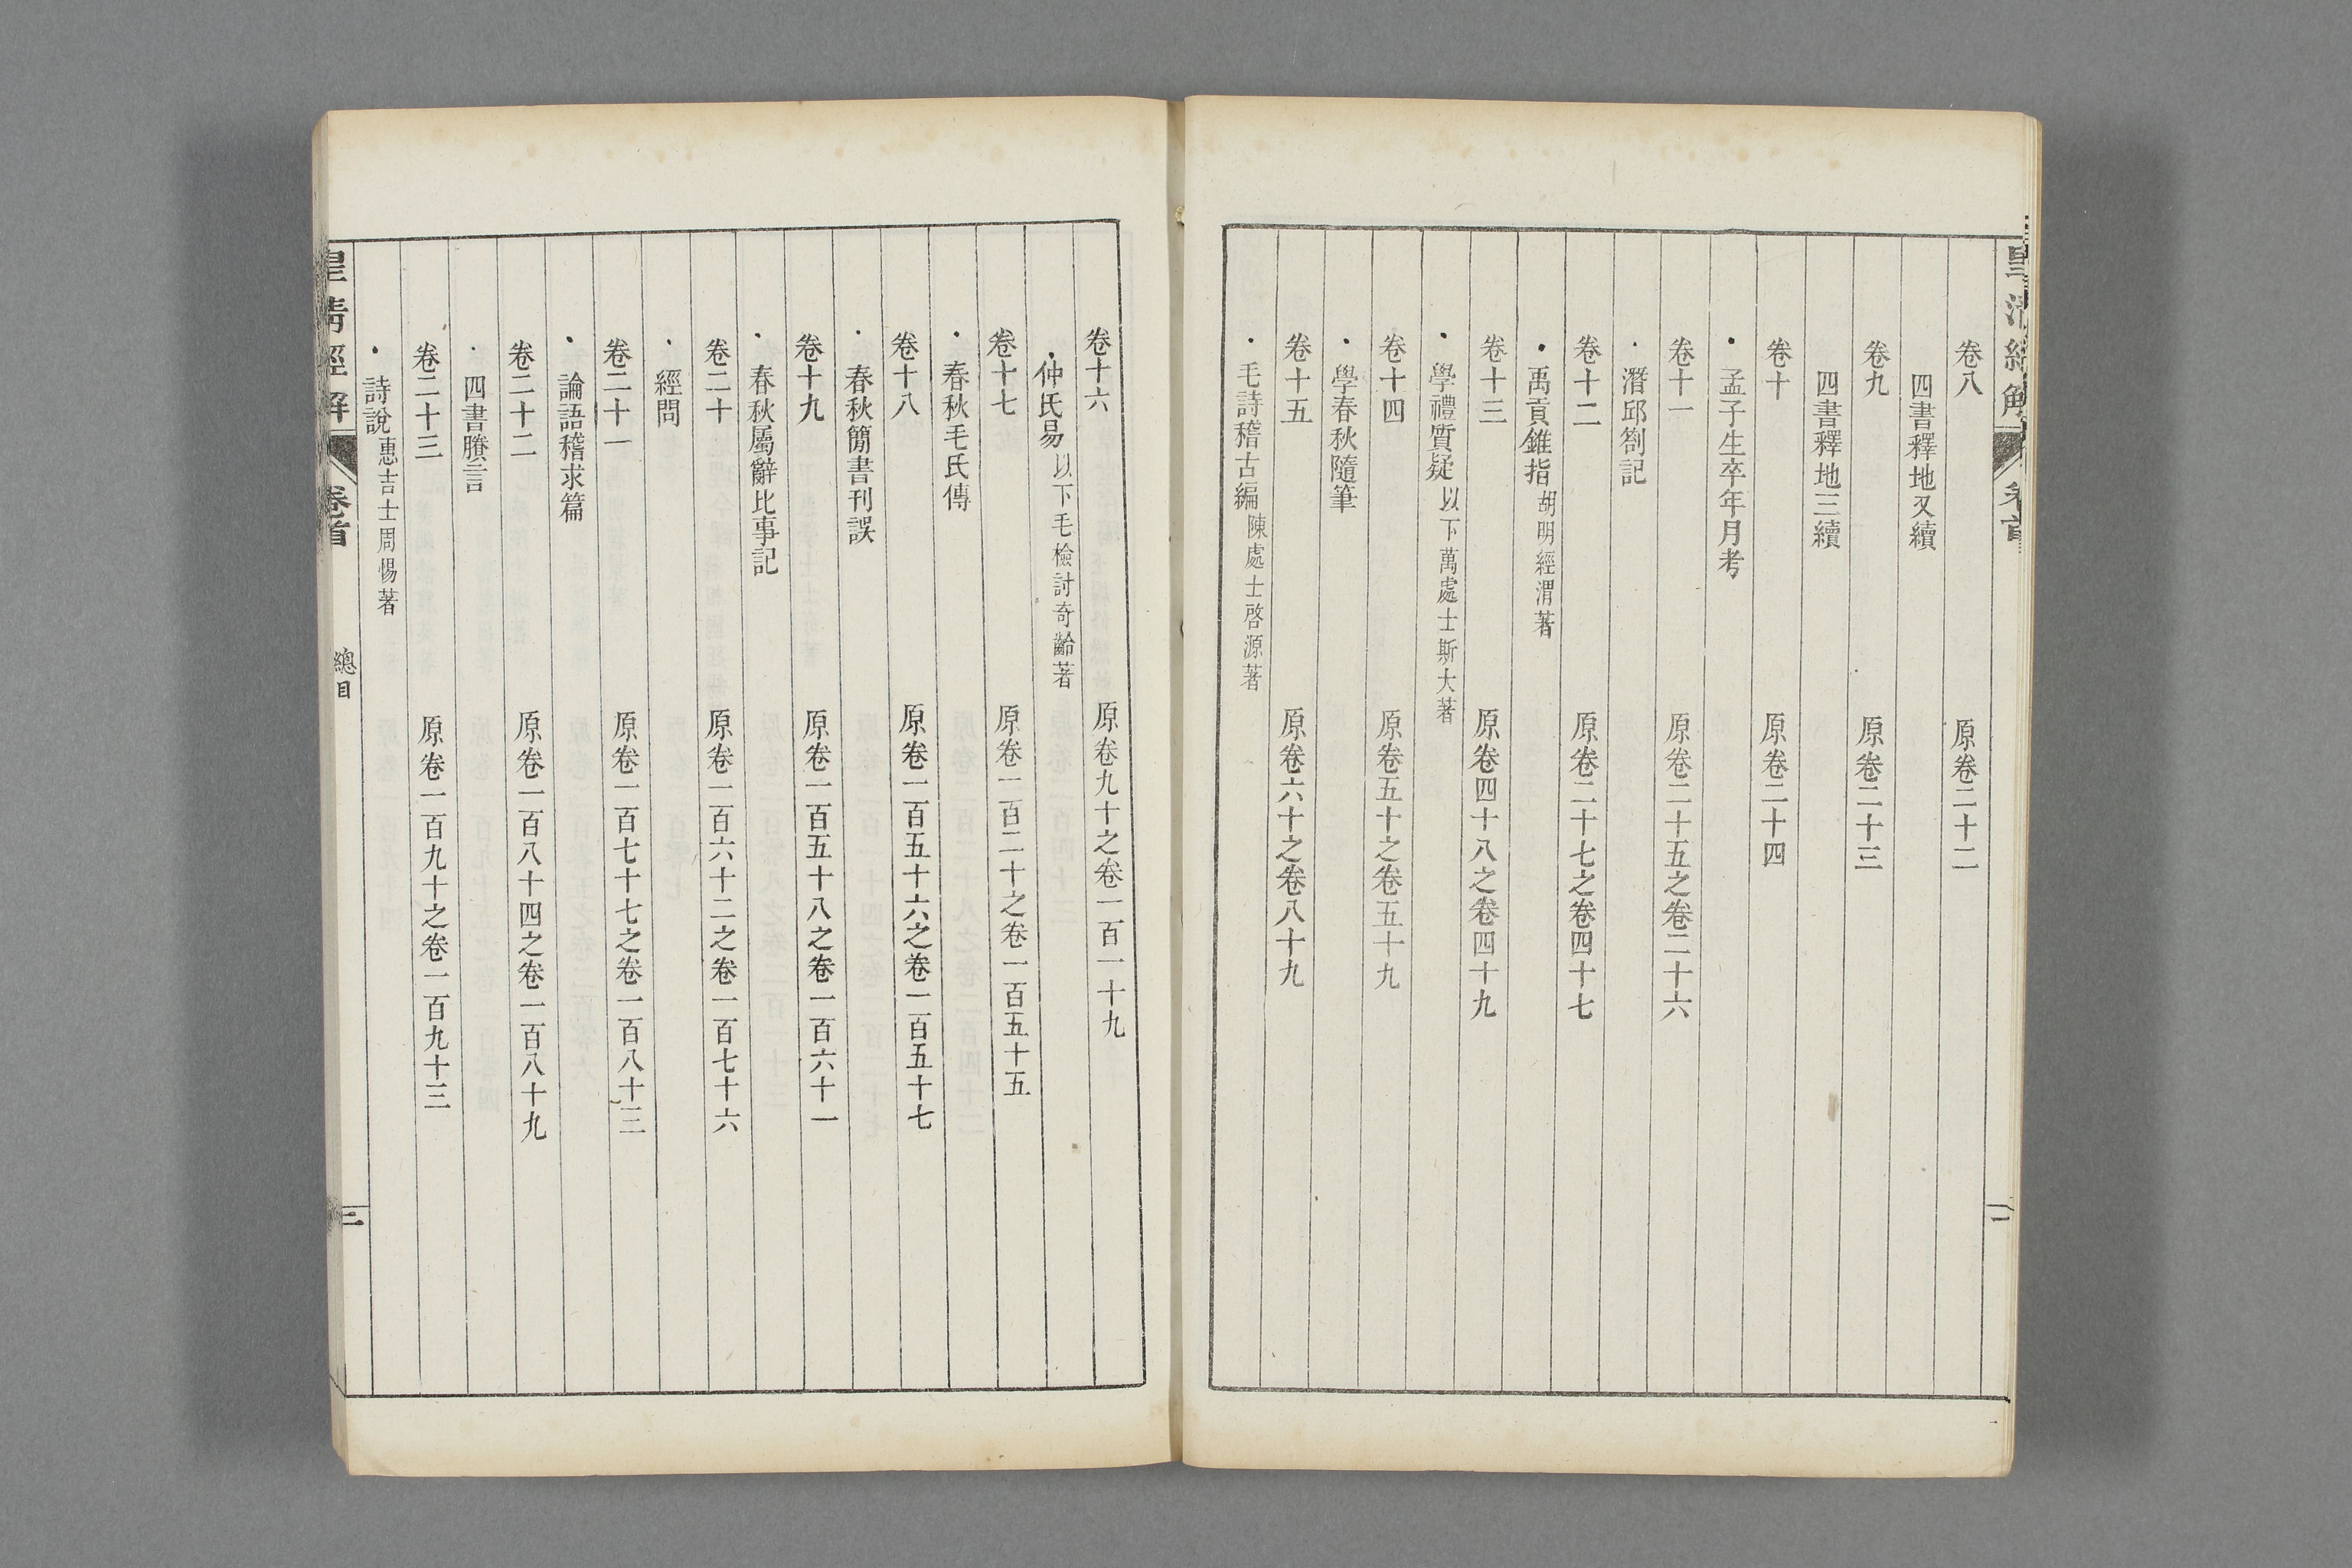 皇清經解
卷首
二
卷八 原卷二十二
四書釋地又續
卷九 原卷二十三
四書釋地三續
卷十 原卷二十四
孟子生卒年月考
卷十一 原卷二十五之卷二十六
潛邱劄記
卷十二 原卷二十七之卷四十七
禹貢錐指 胡明經渭著
卷十三 原卷四十八之卷四十九
學禮質疑 以下萬處士斯大著
卷十四 原卷五十之卷五十九
學春秋隨筆
卷十五 原卷六十之卷八十九
毛詩稽古編 陳處士啓源著
卷十六 原卷九十之卷一百一十九
仲氏易 以下毛檢討奇齡著
卷十七 原卷一百二十之卷一百五十五
春秋毛氏傳
卷十八 原卷一百五十六之卷一百五十七
春秋簡書刊誤
卷十九 原卷一百五十八之卷一百六十一
春秋屬辭比事記
卷二十 原卷一百六十二之卷一百七十六
經問
卷二十一 原卷一百七十七之卷一百八十三
論語稽求篇
卷二十二 原卷一百八十四之卷一百八十九
四書賸言
卷二十三 原卷一百九十之卷一百九十三
詩說 惠吉士周惕著
皇清經解
卷首
總目
三